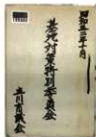 昭和五三年十月
基地対策特別委員会
立川市議会